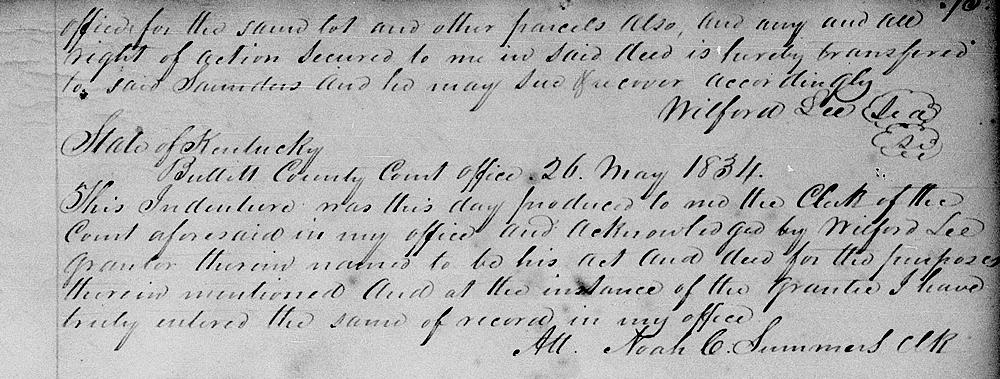 office for the same lot and other parcels also, and any and all
right of action secured to me in said deed is hereby transfered
to said Saunders and he may sue & recover accordingly
Wilford Lee Seal
State of Kentucky
Bullitt County Court office 26. May 1834.
This Indenture was this day produced to me the Clerk of the
Court aforesaid in my office and acknowledged by Wilford Lee
grantor therein named to be his act and deed for the purposes
therein mentioned And at the instance of the grantee I have
truly entered the same of record in my office
Att. Noah C. Summers Clk